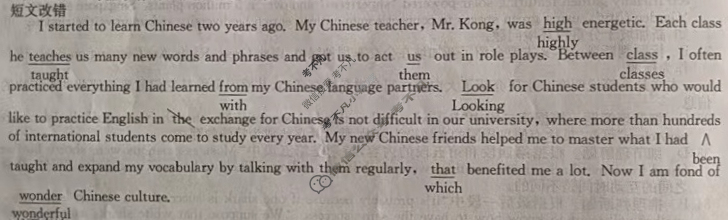 短文改错
I started to learn Chinese two years ago. My Chinese teacher, Mr. Kong, was high energetic. Each class
highly
he teaches us many new words and phrases and got us to act us out in role plays. Between class, I often
taught them classes
practiced everything I had learned from my Chinese language partners. Look for Chinese students who would
with Looking
like to practice English in the exchange for Chinese is not difficult in our university, where more than hundreds
of international students come to study every year. My new Chinese friends helped me to master what I had ∧
been
taught and expand my vocabulary by talking with them regularly, that benefited me a lot. Now I am fond of
which
wonder Chinese culture.
wonderful